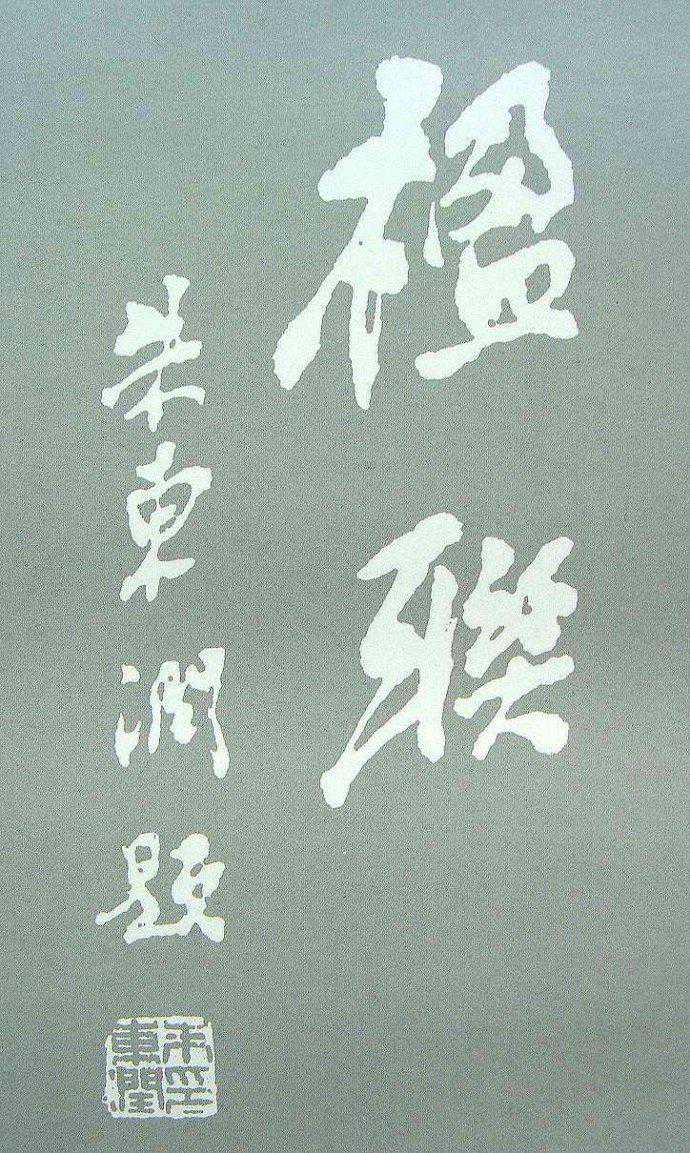 楹聯
朱東潤題
朱東潤印